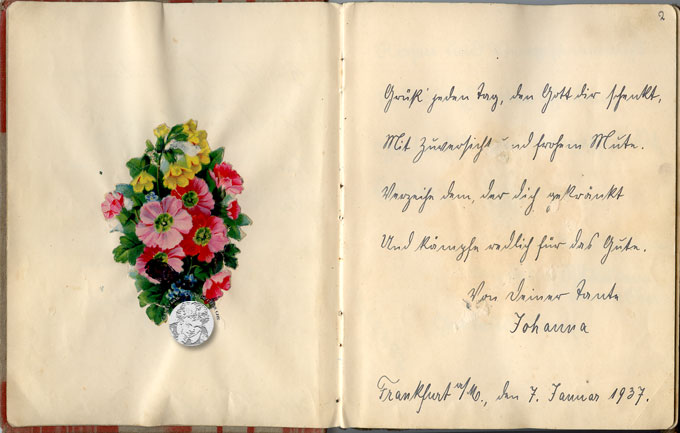 2
Grüß' jeden Tag, den Gott dir schenkt,
Mit Zuversicht und frohem Mute.
Verzeihe dem, der dich gekränkt
Und kämpfe redlich für das Gute.
Von Deiner Tante
Johanna
Frankfurt a/M., den 7. Januar 1937.